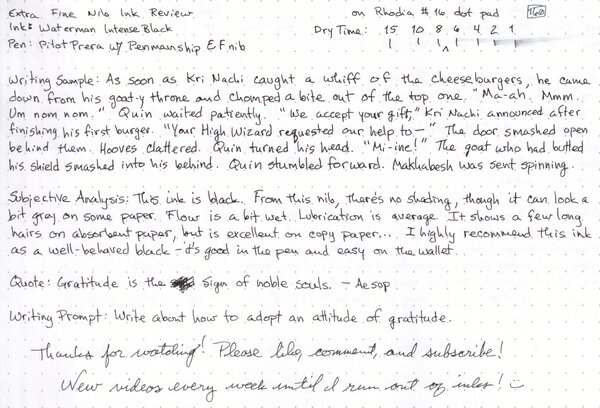 Extra Fine Nib Ink Review on Rhodia #16 dot pad 160
Ink: Waterman Intense Black Dry Time: 15 10 8 6 4 2 1
Pen: Pilot Prera w/ Penmanship EF nib
Writing Sample: As soon as Kri Nachi caught a whiff of the cheeseburgers, he came
down from his goat-y throne and chomped a bite out of the top one. "Ma-ah. Mmm.
Um nom nom." Quin waited patiently. "We accept your gift," Kri Nachi announced after
finishing his first burger. "Your High Wizard requested our help to—" The door smashed open
behind them. Hooves clattered. Quin turned his head. "Mi-ine!" The goat who had butted
his shield smashed into his behind. Quin stumbled forward. Makhabesh was sent spinning.
Subjective Analysis: This ink is black. From this nib, there's no shading, though it can look a
bit grey on some paper. Flow is a bit wet. Lubrication is average. It shows a few long
hairs on absorbent paper, but is excellent on copy paper... I highly recommend this ink
as a well-behaved black – it's good in the pen and easy on the wallet.
Quote: Gratitude is the sign of noble souls. – Aesop
Writing Prompt: Write about how to adopt an attitude of gratitude.
Thanks for watching! Please like, comment, and subscribe!
New videos every week until I run out of inks! :)